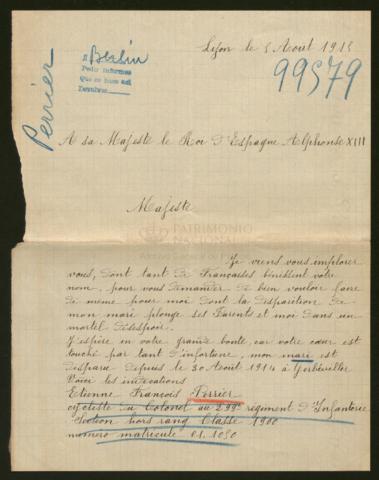 Lyon le 5 Aout 1915
99579
a Berlin
Pedir informes
Perrier
A sa Majeste le Roi d'Espagne Alphonse XIII
Majeste
PATRIMONIO
NACIONAL
Je viens vous implorer
vous, dont tant de Françaises bénissent votre
nom, pour vous demander de bien vouloir faire
de même pour moi dont la disparition de
mon mari plonge ses Parents et moi dans un
mortel désespoir.
J'espère en votre grande bonté, car votre cœur est
touché par tant d'infortune, mon mari est
disparu depuis le 30 Août 1914 à Gerbéviller
Voici les indications
Etienne François Perrier
cycliste du Colonel au 299e régiment d'Infanterie
Section hors rang Classe 1900
numero matricule 01.1030